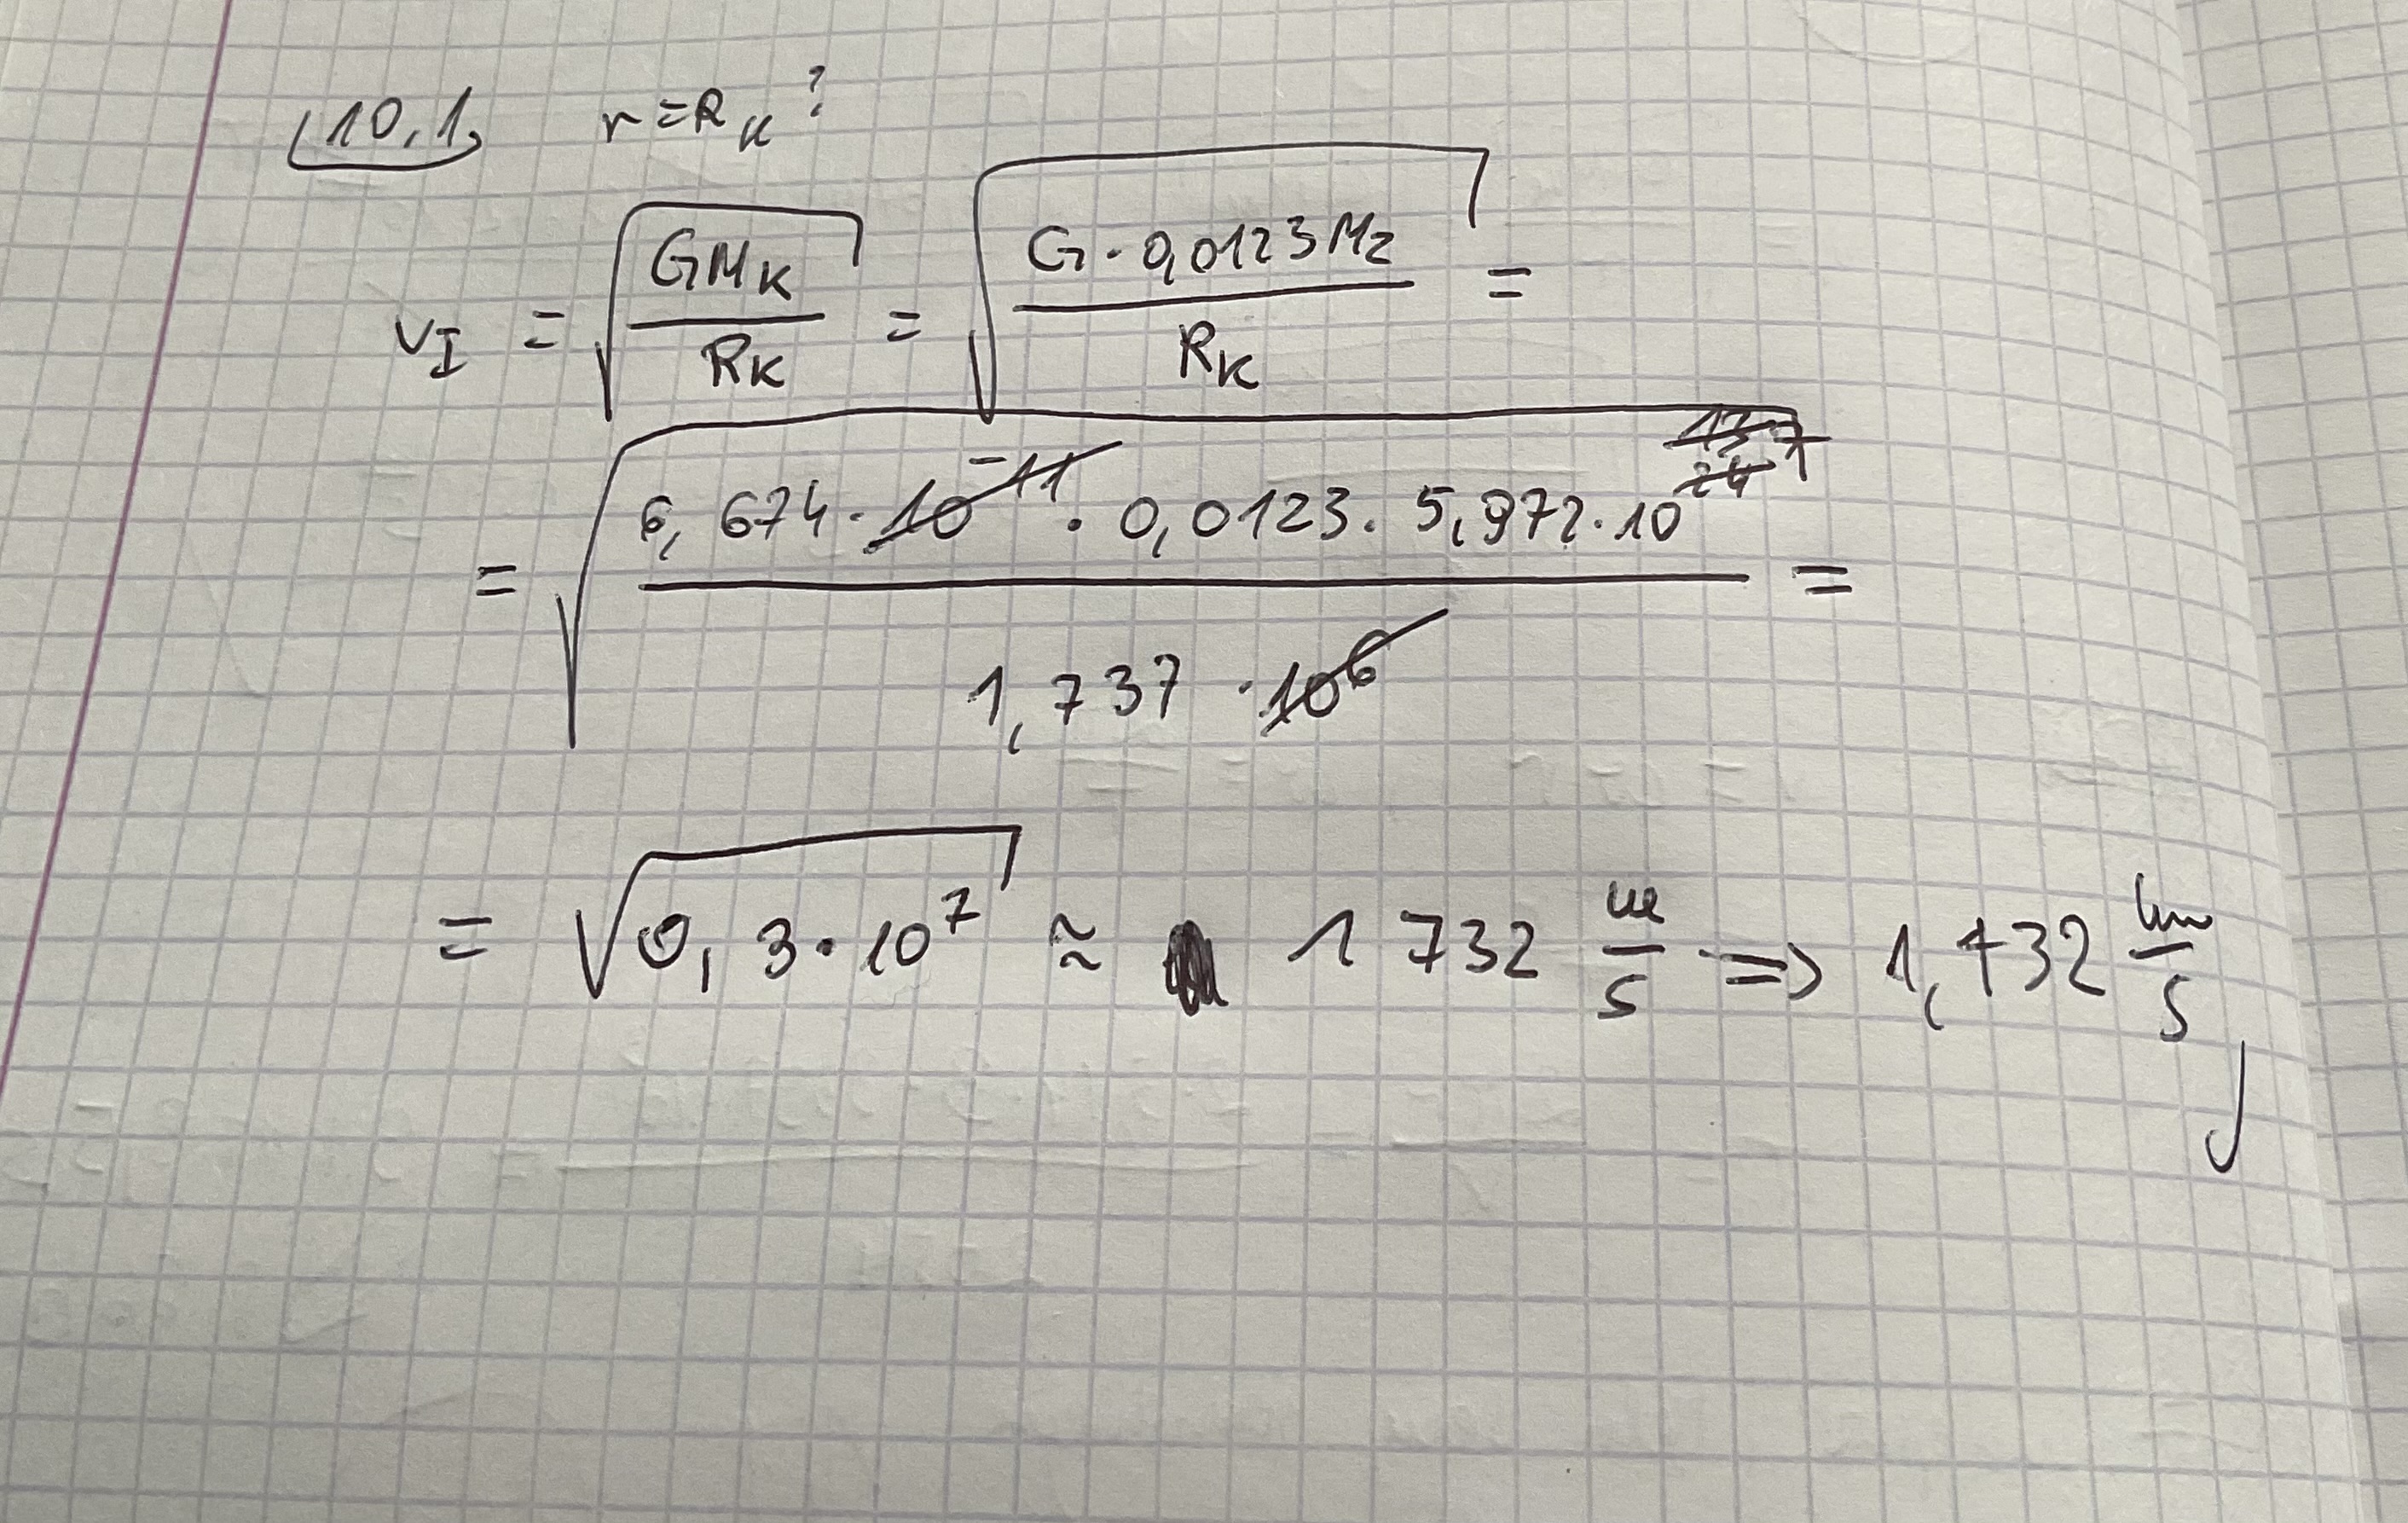 10.1 r=R_K?
v_I = √(GM_K / R_K) = √(G·0,0123M_Z / R_K) =
= √(6,674·10^-11 · 0,0123 · 5,972·10^24 13 7 / 1,737·10^6) =
= √(0,3·10^7) ≈ 1732 m/s => 1,732 km/s